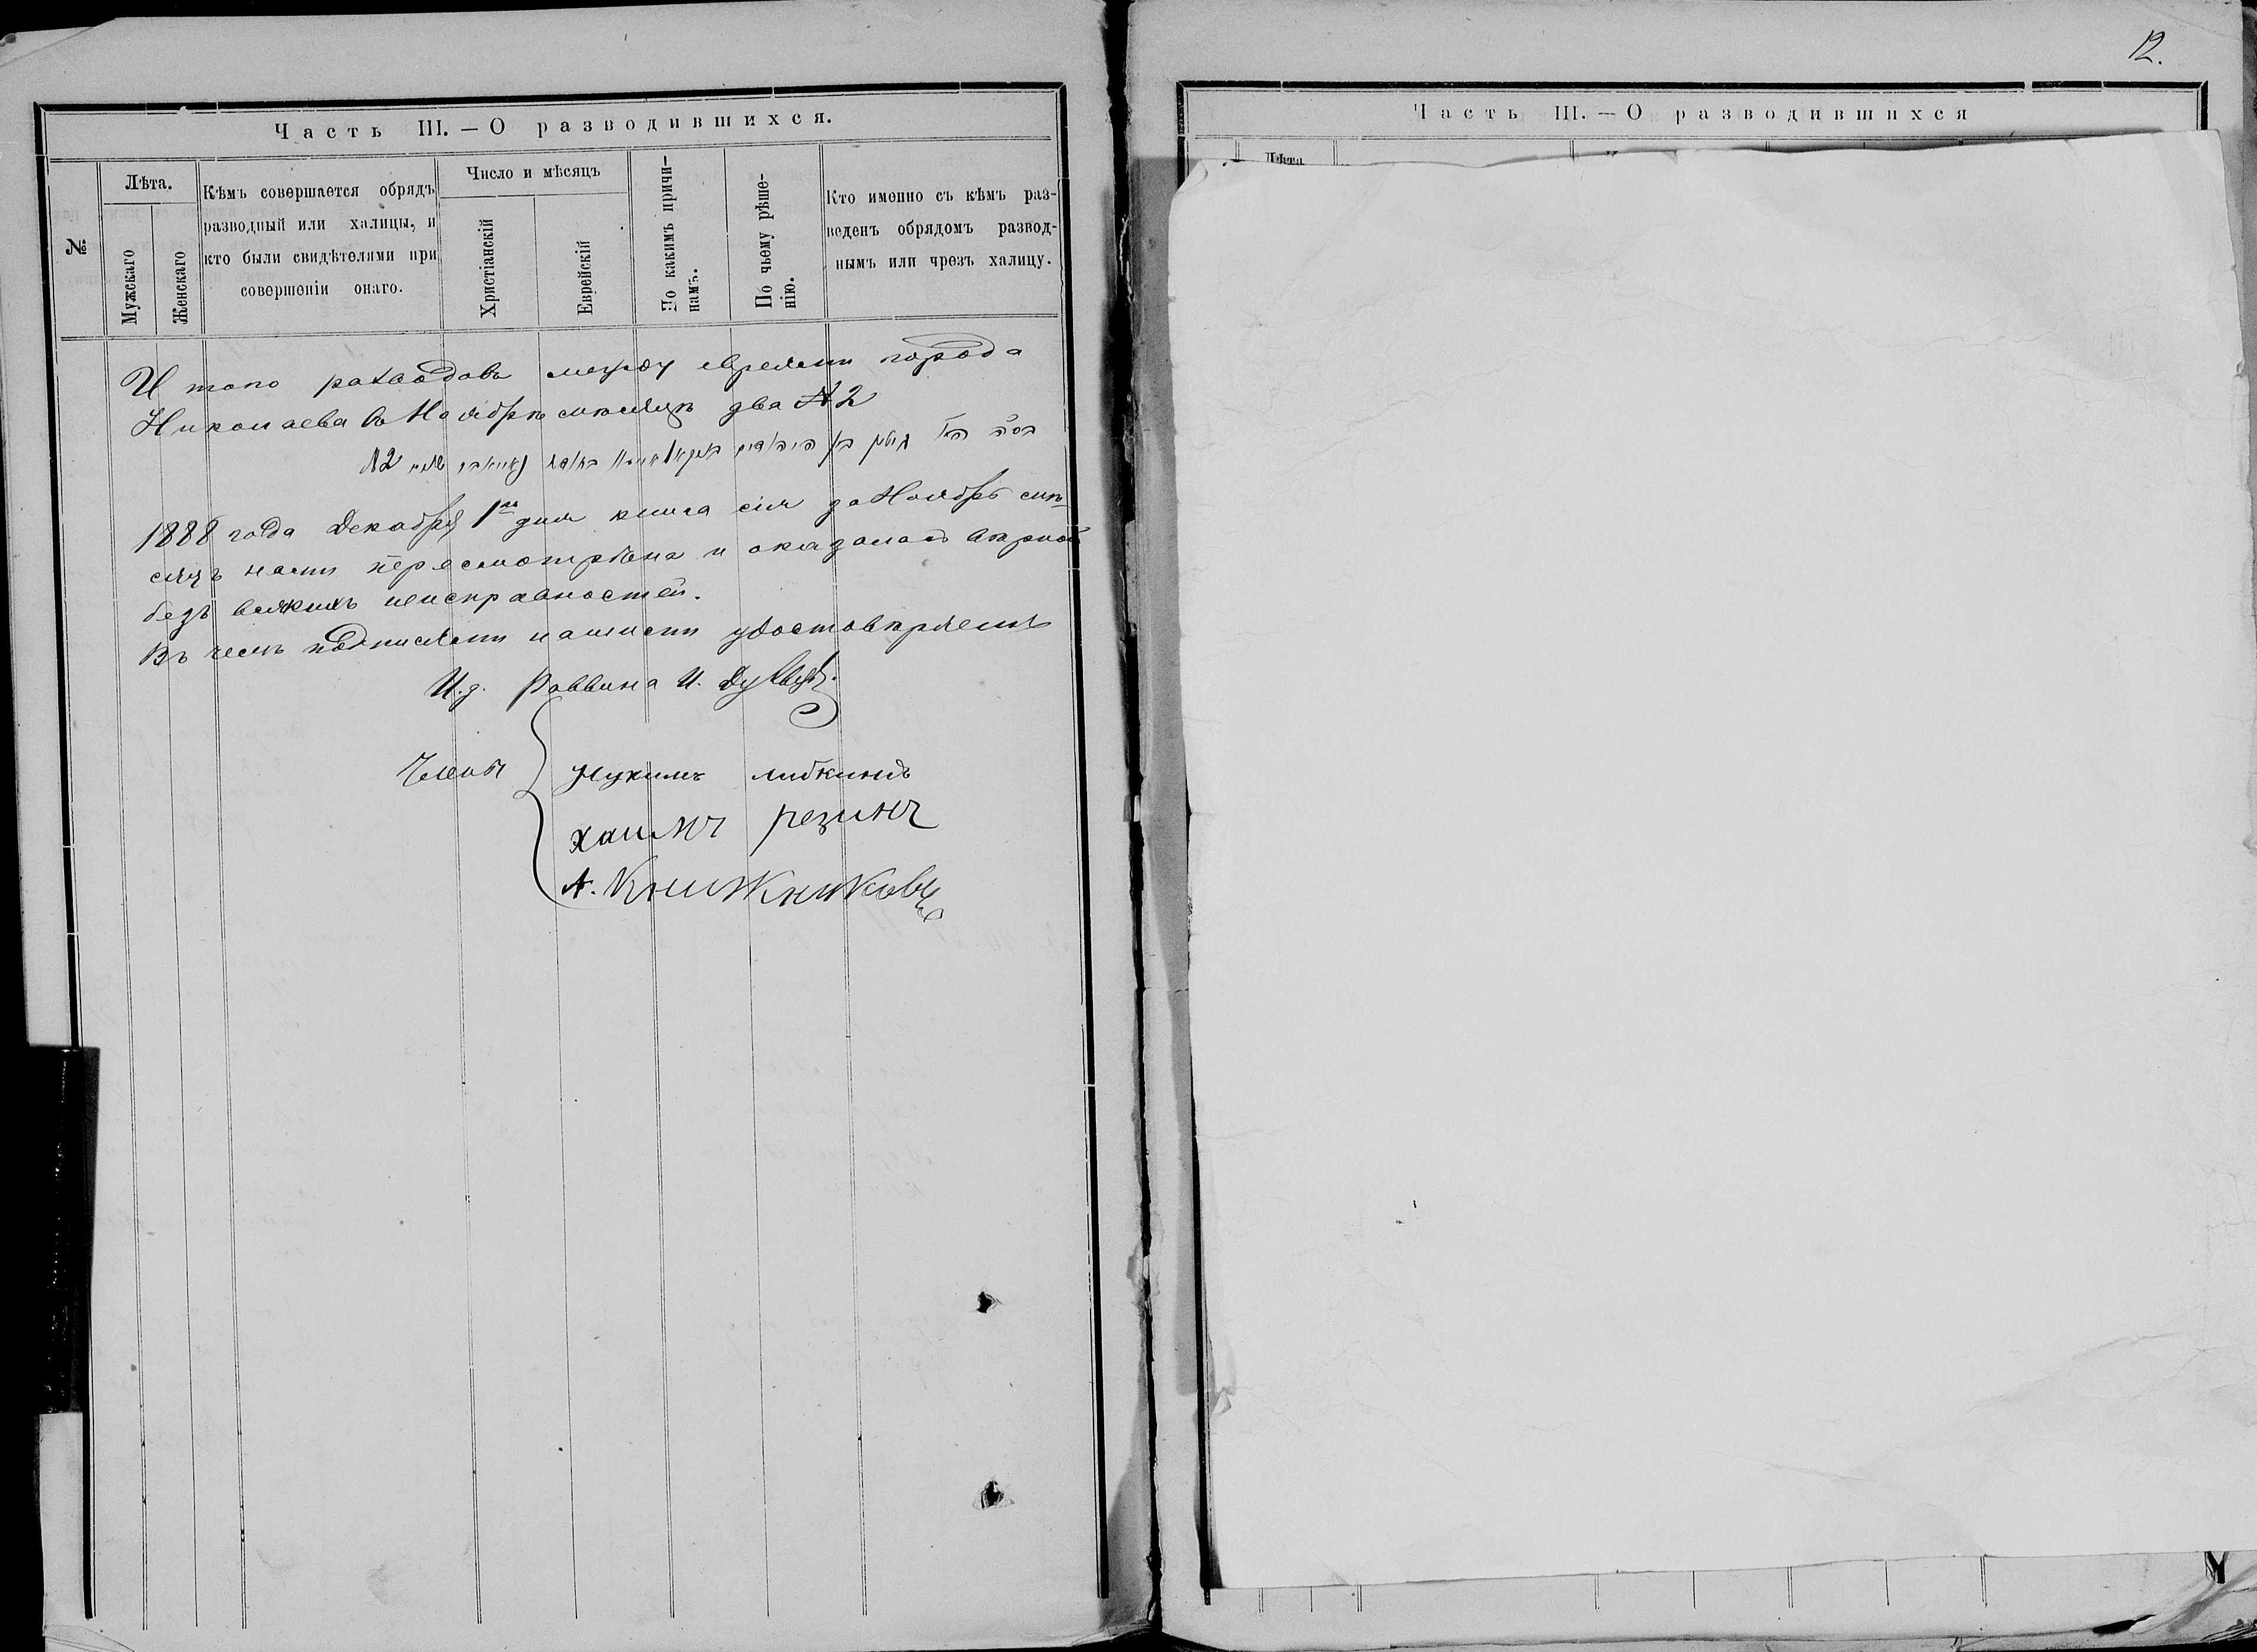 Часть III. — О разводившихся.
№
Лѣта.
Мужскаго
Женскаго
Кѣмъ совершается обрядъ
разводный или халицы, и
кто были свидѣтелями при
совершеніи онаго.
Число и мѣсяцъ
Христіанскій
Еврейскій
По какимъ причи-
намъ.
По чьему рѣше-
нію.
Кто именно съ кѣмъ раз-
веденъ обрядомъ развод-
нымъ или чрезъ халицу.
Итого разводовъ между евреями города
Николаева въ Ноябрѣ мѣсяцѣ два № 2
№ 2
1888 года Декабря 1го дня книга сія за Ноябрь мѣ-
сяцъ нами пересмотрѣна и оказалась вѣрной
безъ всякихъ неисправностей.
Въ чемъ подписями нашими удостовѣряемъ
И. д. Раввина И.
Члены
Нухимъ либкиндъ
хаимъ резинъ
А. Книжниковъ
12.
Часть III. — О разводившихся
Лѣта